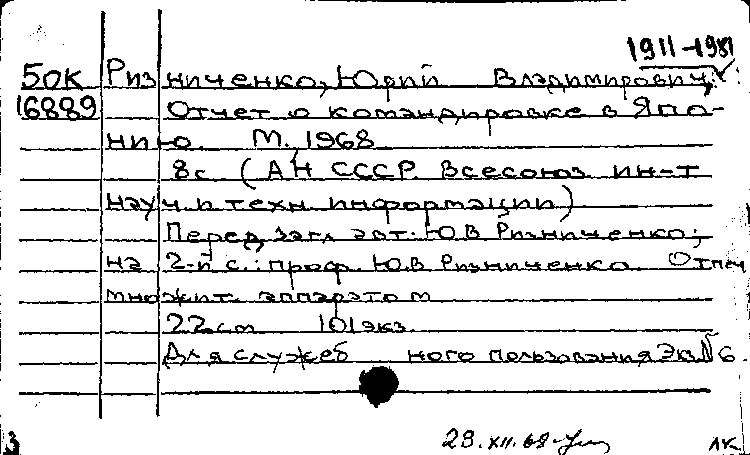 1911-1981
50К Ризниченко, Юрий Владимирович,
16889 Отчет о командировке в Япо-
нию. М., 1968
8с. (АН СССР. Всесоюз. ин-т
науч. и техн. информации)
Перед загл. авт.: Ю.В. Ризниченко;
на 2-й с.: проф. Ю.В. Ризниченко. Отпеч
множит. аппаратом
22см 101экз.
Для служеб ного пользования Экз№6.
3 29.XII.68 ЛК